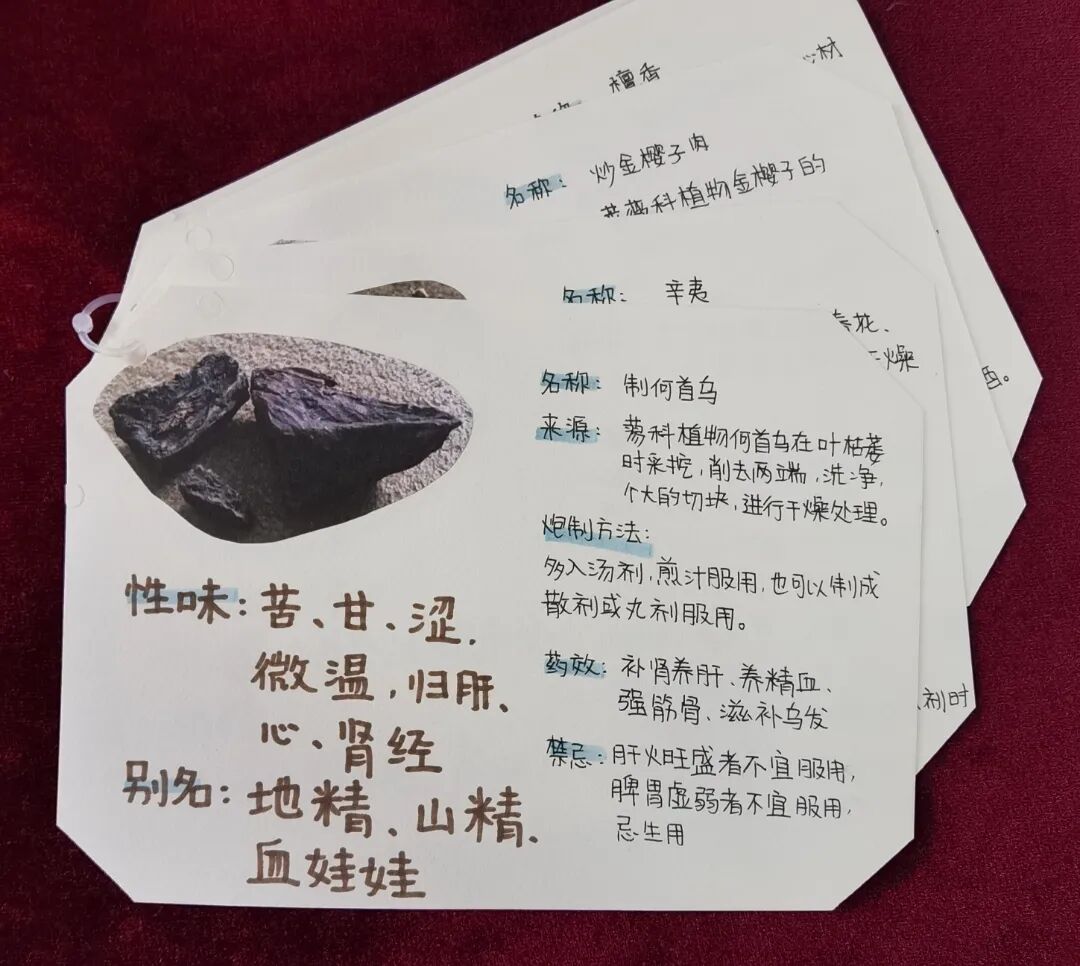 檀香
材
名称：炒金樱子肉
蔷薇科植物金樱子的
名称：辛夷
花、
干燥
西。
剂时
名称：制何首乌
来源：蓼科植物何首乌在叶枯萎
时采挖，削去两端，洗净，
个大的切块，进行干燥处理。
炮制方法：
多入汤剂，煎汁服用，也可以制成
散剂或丸剂服用。
药效：补肾养肝、养精血、
强筋骨、滋补乌发
禁忌：肝火旺盛者不宜服用，
脾胃虚弱者不宜服用，
忌生用
性味：苦、甘、涩，
微温，归肝、
心、肾经
别名：地精、山精、
血娃娃